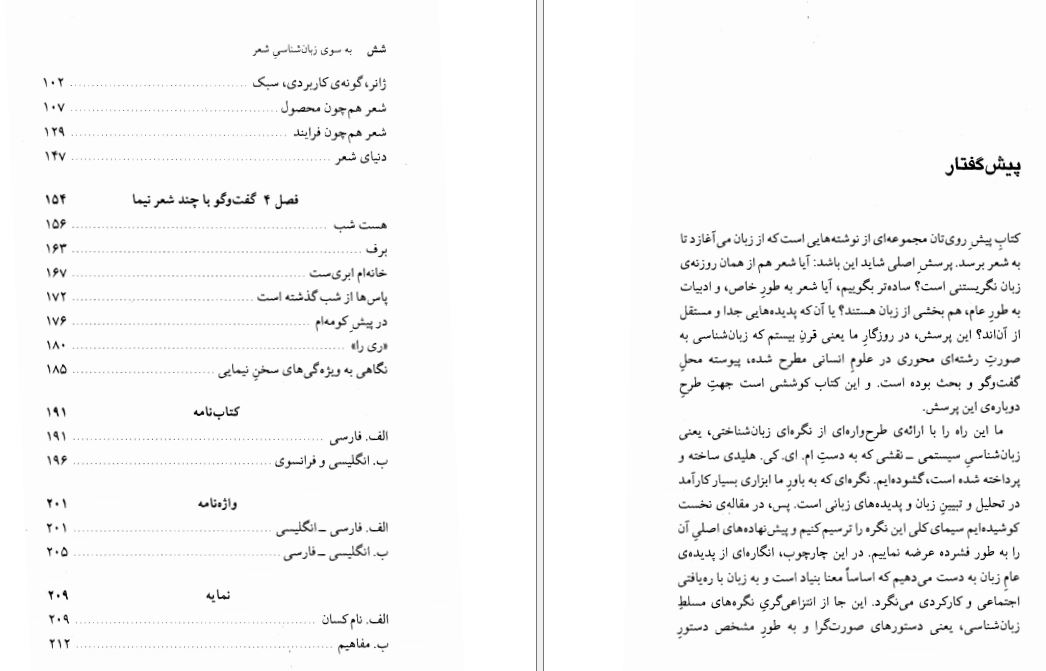 شش به سوی زبان‌شناسیِ شعر
ژانر، گونه‌ی کاربردی، سبک ........ ۱۰۲
شعر هم‌چون محصول ........ ۱۰۷
شعر هم‌چون فرایند ........ ۱۲۹
دنیای شعر ........ ۱۴۷
فصل ۴ گفت‌وگو با چند شعر نیما ۱۵۴
هست شب ........ ۱۵۶
برف ........ ۱۶۳
خانه‌ام ابری‌ست ........ ۱۶۷
پاس‌ها از شب گذشته است ........ ۱۷۲
در پیشِ کومه‌ام ........ ۱۷۶
«ری را» ........ ۱۸۰
نگاهی به ویژه‌گی‌های سخنِ نیمایی ........ ۱۸۵
کتاب‌نامه ۱۹۱
الف. فارسی ........ ۱۹۱
ب. انگلیسی و فرانسوی ........ ۱۹۶
واژه‌نامه ۲۰۱
الف. فارسی ـ انگلیسی ........ ۲۰۱
ب. انگلیسی ـ فارسی ........ ۲۰۵
نمایه ۲۰۹
الف. نام کسان ........ ۲۰۹
ب. مفاهیم ........ ۲۱۲
پیش‌گفتار
کتابِ پیشِ روی‌تان مجموعه‌ای از نوشته‌هایی است که از زبان می‌آغازد تا
به شعر برسد. پرسشِ اصلی شاید این باشد: آیا شعر هم از همان روزنه‌ی
زبان نگریستنی است؟ ساده‌تر بگوییم، آیا شعر به طورِ خاص، و ادبیات
به طورِ عام، هم بخشی از زبان هستند؟ یا آن‌که پدیده‌هایی جدا و مستقل
از آن‌اند؟ این پرسش، در روزگارِ ما یعنی قرنِ بیستم که زبان‌شناسی به
صورتِ رشته‌ای محوری در علومِ انسانی مطرح شده، پیوسته محلِ
گفت‌وگو و بحث بوده است. و این کتاب کوششی است جهتِ طرحِ
دوباره‌ی این پرسش.
ما این راه را با ارائه‌ی طرح‌واره‌ای از نگره‌ای زبان‌شناختی، یعنی
زبان‌شناسیِ سیستمی ـ نقشی که به دستِ ام. ای. کی. هلیدی ساخته و
پرداخته شده است، گشوده‌ایم. نگره‌ای که به باورِ ما ابزاری بسیار کارآمد
در تحلیل و تبیینِ زبان و پدیده‌های زبانی است. پس، در مقاله‌ی نخست
کوشیده‌ایم سیمای کلی این نگره را ترسیم کنیم و پیش‌نهاده‌های اصلیِ آن
را به طور فشرده عرضه نماییم. در این چارچوب، انگاره‌ای از پدیده‌ی
عامِ زبان به دست می‌دهیم که اساساً معنا بنیاد است و به زبان با ره‌یافتی
اجتماعی و کارکردی می‌نگرد. این جا از انتزاعی‌گریِ نگره‌های مسلطِ
زبان‌شناسی، یعنی دستورهای صورت‌گرا و به طورِ مشخص دستورِ